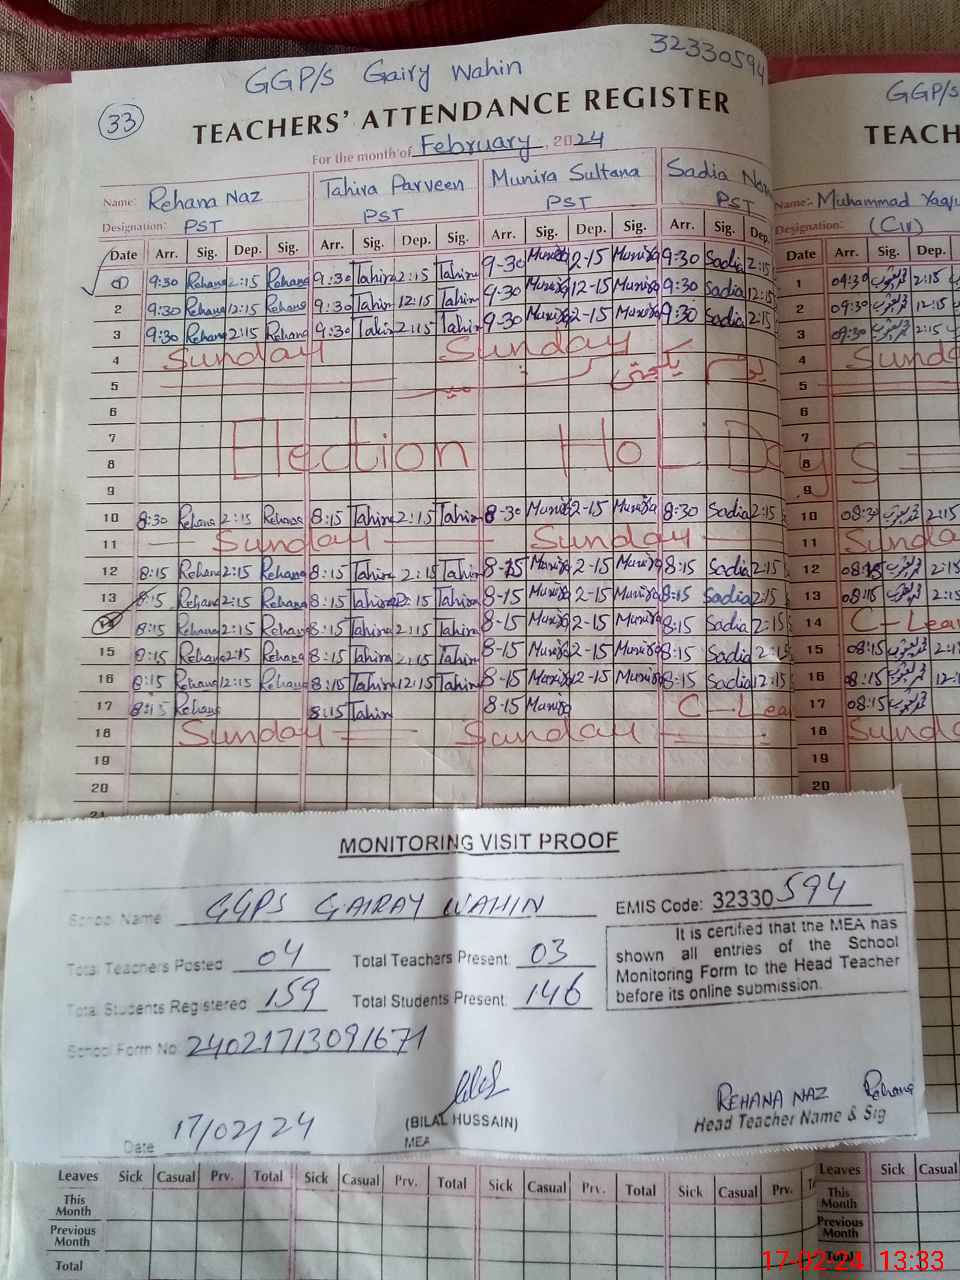 GGP/s Gairy Wahin
32330594
33
TEACHERS' ATTENDANCE REGISTER
For the month of February, 2024
Name: Rehana Naz Tahira Parveen Munira Sultana Sadia
Designation: PST PST PST PST
Date Arr. Sig. Dep. Sig. Arr. Sig. Dep. Sig. Arr. Sig. Dep. Sig. Arr. Sig. Dep.
1 9:30 Rehana 2:15 Rehana 9:30 Tahira 2:15 Tahira 9-30 Munira 2-15 Munira 9:30 Sadia 2:15
2 9:30 Rehana 12:15 Rehana 9:30 Tahira 12:15 Tahira 9-30 Munira 12-15 Munira 9:30 Sadia 12:15
3 9:30 Rehana 2:15 Rehana 9:30 Tahira 2:15 Tahira 9-30 Munira 2-15 Munira 9:30 Sadia 2:15
4 Sunday Sunday
5 یوم یکجہتی
6
7 Election HoLiDays
8
9
10 8:30 Rehana 2:15 Rehana 8:15 Tahira 2:15 Tahira 8-30 Munira 2-15 Munira 8:30 Sadia 2:15
11 Sunday Sunday
12 8:15 Rehana 2:15 Rehana 8:15 Tahira 2:15 Tahira 8-15 Munira 2-15 Munira 8:15 Sadia 2:15
13 8:15 Rehana 2:15 Rehana 8:15 Tahira 2:15 Tahira 8-15 Munira 2-15 Munira 8:15 Sadia 2:15
14 8:15 Rehana 2:15 Rehana 8:15 Tahira 2:15 Tahira 8-15 Munira 2-15 Munira 8:15 Sadia 2:15
15 8:15 Rehana 2:15 Rehana 8:15 Tahira 2:15 Tahira 8-15 Munira 2-15 Munira 8:15 Sadia 2:15
16 8:15 Rehana 12:15 Rehana 8:15 Tahira 12:15 Tahira 8-15 Munira 12-15 Munira 8:15 Sadia 12:15
17 8:15 Rehana 8:15 Tahira 8-15 Munira C-Lea
18 Sunday Sunday
19
20
21
GGP/s
TEACH
Name: Muhammad
Designation: (CIV)
Date Arr. Sig. Dep.
1 09:30 2:15
2 09:30 12:15
3 09:30 2:15
4 Sund
5
6
7
8
9
10 08:30 2:15
11 Sunda
12 08:15 2:15
13 08:15 2:15
14 C-Lea
15 08:15 2:15
16 08:15 12:
17 08:15
18 Sund
19
20
MONITORING VISIT PROOF
School Name GGPS GAIRAY WAHIN EMIS Code: 32330594
Total Teachers Posted 04 Total Teachers Present: 03
Total Students Registered 159 Total Students Present: 146
It is certified that the MEA has
shown all entries of the School
Monitoring Form to the Head Teacher
before its online submission.
School Form No: 24021713091671
REHANA NAZ Rehana
(BILAL HUSSAIN) Head Teacher Name & Sig
Date 17/02/24 MEA
Leaves Sick Casual Prv. Total Sick Casual Prv. Total Sick Casual Prv. Total Sick Casual Prv. Leaves Sick Casual
This Month This Month
Previous Month Previous Month
Total Total
17-02-24 13:33